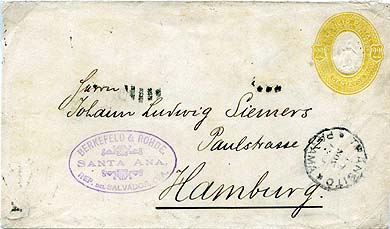 Herrn
Johann Ludwig Siemers
Paulstrasse
Hamburg.
BERKEFELD & ROHDE
SANTA ANA,
REP. DE SALVADOR,
TRANSITO
PANAMA